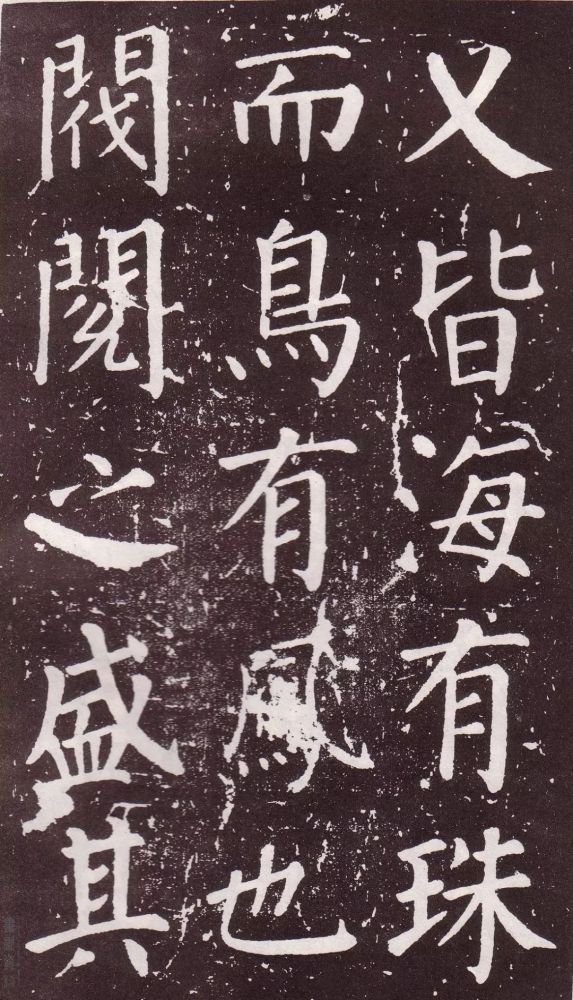 又皆海有珠
而鳥有鳳也
閥閱之盛其